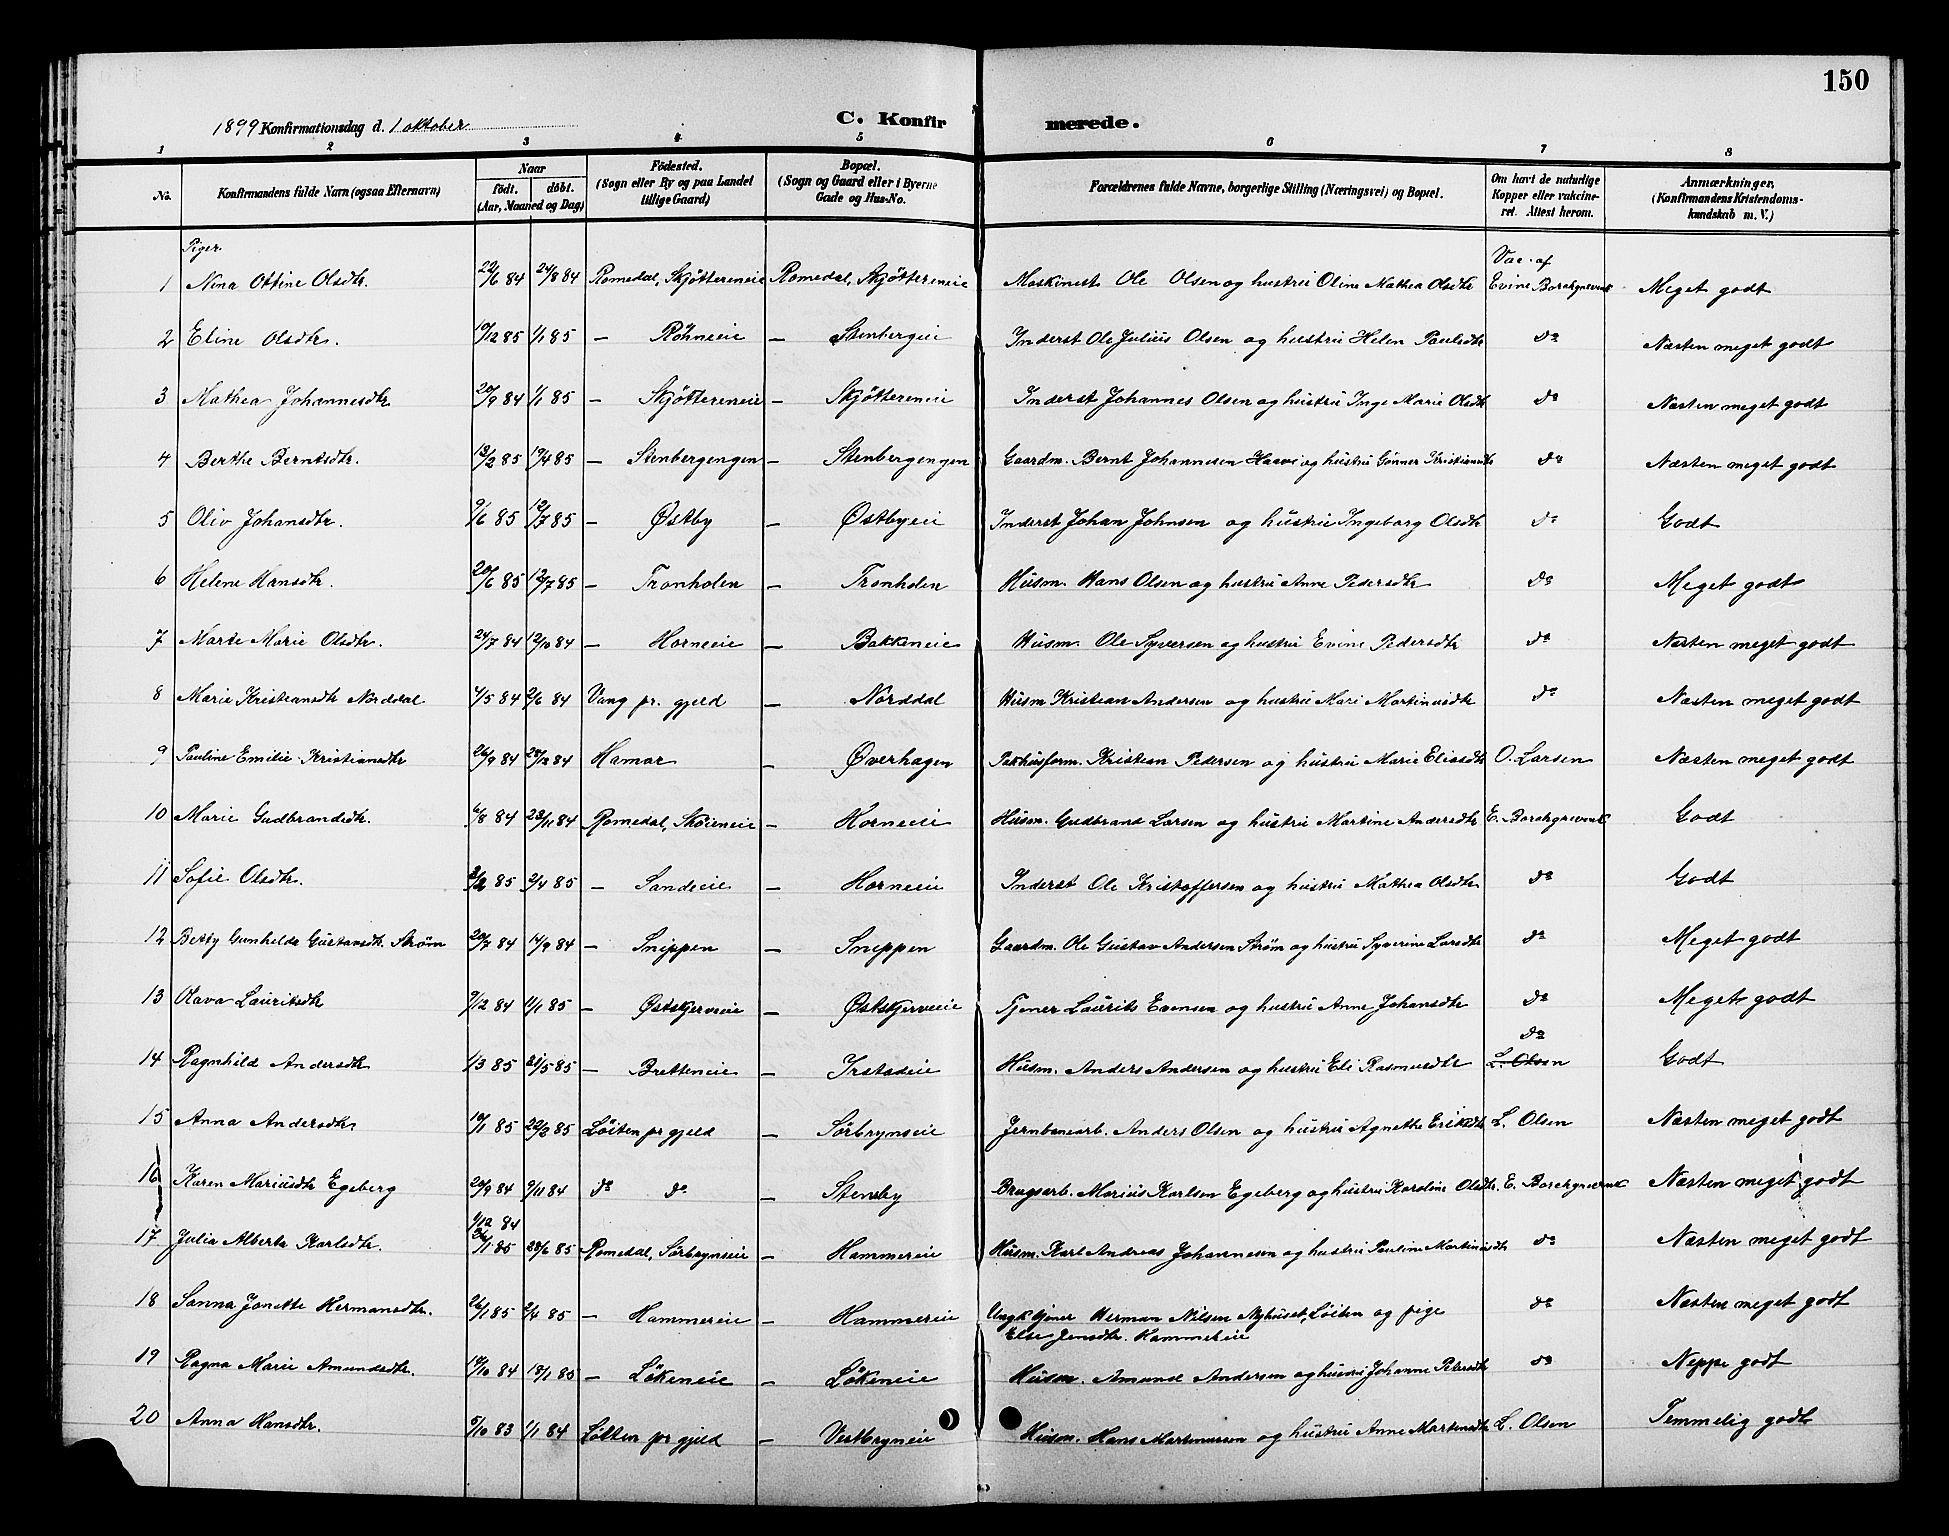 150
1899 Konfirmationsdag d. 1 oktober
C. Konfirmerede.
1 2 3 4 5 6 7 8
No. Konfirmandens fulde Navn (ogsaa Efternavn) Naar født. døbt. (Aar, Maaned og Dag) Fødested. (Sogn eller By og paa Landet tillige Gaard) Bopæl. (Sogn og Gaard eller i Byerne Gade og Hus-No. Forældrenes fulde Navne, borgerlige Stilling (Næringsvei) og Bopæl. Om havt de naturlige Kopper eller vakcineret. Attest herom. Anmærkninger, (Konfirmandens Kristendomskundskab m. V.)
Piger.
1 Nina Ottine Olsdtr. 22/6 84 24/8 84 Romedal, Skjøttereneie Romedal, Skjøttereneie Maskinest Ole Olsen og hustru Oline Mathea Olsdtr Vac. af Evine Borchgrevink Meget godt
2 Eline Olsdtr. 10/12 85 1/1 85 — Röhneeie — Stenbergeie Inderst Ole Julius Olsen og hustru Helen Paulsdtr do Næsten meget godt
3 Mathea Johannesdtr 20/9 84 1/1 85 — Skjøttereneie — Skjøttereneie Inderst Johannes Olsen og hustru Inge Marie Olsdtr do Næsten meget godt
4 Berthe Berntsdtr. 13/2 85 19/4 85 — Stenbergengen — Stenbergengen Gaardm. Bernt Johannesen Haave og hustru Gunner Kristiansdtr do Næsten meget godt
5 Oliv Johansdtr. 9/6 85 12/7 85 — Østby — Østbyeie Inderst Johan Johnsen og hustru Ingeborg Olsdtr do Godt
6 Helene Hansdtr. 20/6 85 12/7 85 — Tronholen — Tronholen Husm. Hans Olsen og hustru Anne Pedersdtr do Meget godt
7 Marte Marie Olsdtr. 24/7 84 12/10 84 — Horneeie — Bakkeneie Husm. Ole Syversen og hustru Evine Pedersdtr do Næsten meget godt
8 Marie Kristiansdtr Norddal 4/5 84 2/6 84 Vang pr. gjeld — Norddal Husm Kristian Andersen og hustru Mari Martinusdtr do Næsten meget godt
9 Pauline Emilie Kristiansdtr 26/9 84 28/12 84 Hamar — Øverhagen Pakhusform. Kristian Pedersen og hustru Marie Eliasdtr O. Larsen Næsten meget godt
10 Marie Gudbrandsdtr. 6/8 84 23/11 84 Romedal, Skøieneie — Horneeie Husm. Gudbrand Larsen og hustru Martine Andersdtr E. Borchgrevink Godt
11 Sofie Olsdtr. 3/2 85 2/4 85 — Sandeeie — Horneeie Inderst Ole Kristoffersen og hustru Mathea Olsdtr do Godt
12 Betsy Gunhilda Gustavsdtr. Strøm 20/7 84 14/9 84 — Snippen — Snippen Gaardm. Ole Gustav Andersen Strøm og hustru Syverine Larsdtr do Meget godt
13 Olava Lauritsdtr 9/12 84 11/1 85 — Østskjerveeie — Østskjerveeie Tjener Laurits Evensen og hustru Anne Johansdtr do Meget godt
14 Ragnhild Andersdtr 1/3 85 31/5 85 — Bretteneie — Irstadeie Husm. Anders Andersen og hustru Eli Rasmusdtr do L. Olsen Godt
15 Anna Andersdtr 19/1 85 22/2 85 Løiten pr gjeld — Sörbrynseie Jernbanearb. Anders Olsen og hustru Agnethe Eriksdtr L. Olsen Næsten meget godt
16 Karen Mariusdtr Egeberg 20/9 84 9/11 84 do do — Stensby Brugsarb. Marius Karlsen Egeberg og hustru Karoline Olsdtr. E. Borchgrevink Næsten meget godt
17 Julia Alberta Karlsdtr. 1/12 84 26/1 85 28/6 85 Romedal, Sörbrynseie — Hammereie Husm. Karl Andreas Johannesen og hustru Pauline Martinusdtr do Næsten meget godt
18 Sanna Jonette Hermansdtr. 26/1 85 2/4 85 — Hammereie — Hammereie Ungk. tjener Herman Nilsen Nyhuset, Løiten og pige Else Jensdtr. Hammereie do Næsten meget godt
19 Ragna Marie Amundsdtr. 14/10 84 18/1 85 — Lökeneie — Lökeneie Husm. Amund Andersen og hustru Johanne Petersdtr do Neppe godt
20 Anna Hansdtr. 5/10 83 1/1 84 Løiten pr gjeld — Vestbryneie Husm. Hans Martinussen og hustru Anne Martensdtr L. Olsen Temmelig godt